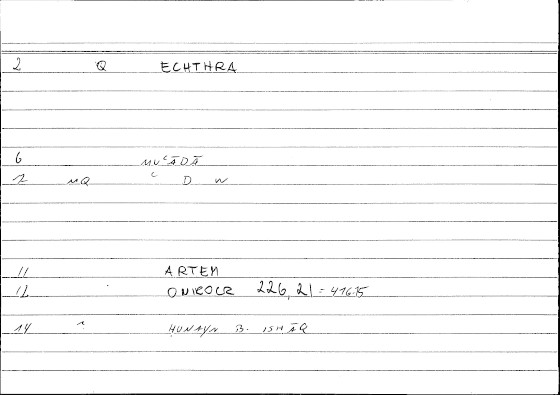 2 Q ECHTHRA
6 MUʿĀDĀ
7 MQ ʿ D W
11 ARTEM
12 ONIROCR 226, 21 = 416.15
14 HUNAYN B. ISHĀQ